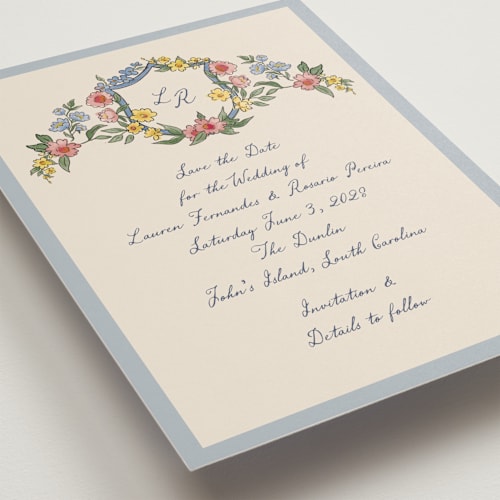 LR
Save the Date
for the Wedding of
Lauren Fernandes & Rosario Pereira
Saturday June 3, 2028
The Dunlin
John's Island, South Carolina
Invitation &
Details to follow